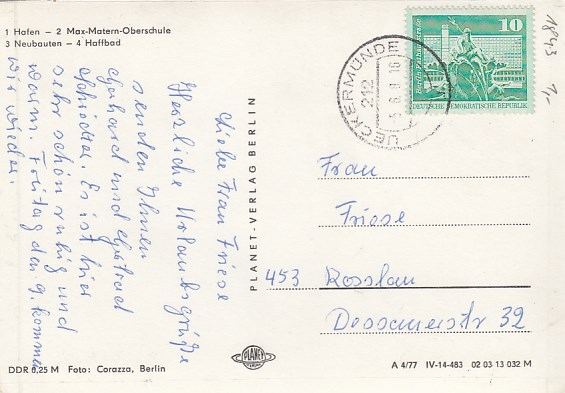 1 Hafen – 2 Max-Matern-Oberschule
3 Neubauten – 4 Haffbad
Liebe Frau Friese
Herzliche Urlaubsgrüße
senden Ihnen
Gerhard und Gertrud
Schröder. Es ist hier
sehr schön ruhig und
warm. Freitag den 9. kommen
wir wieder.
DDR 0,25 M Foto: Corazza, Berlin
PLANET-VERLAG BERLIN
PLANET
UECKERMÜNDE
212
10
DEUTSCHE DEMOKRATISCHE REPUBLIK
1843
1,-
Frau
Friese
453 Rosslau
32
A 4/77 IV-14-483 02 03 13 032 M